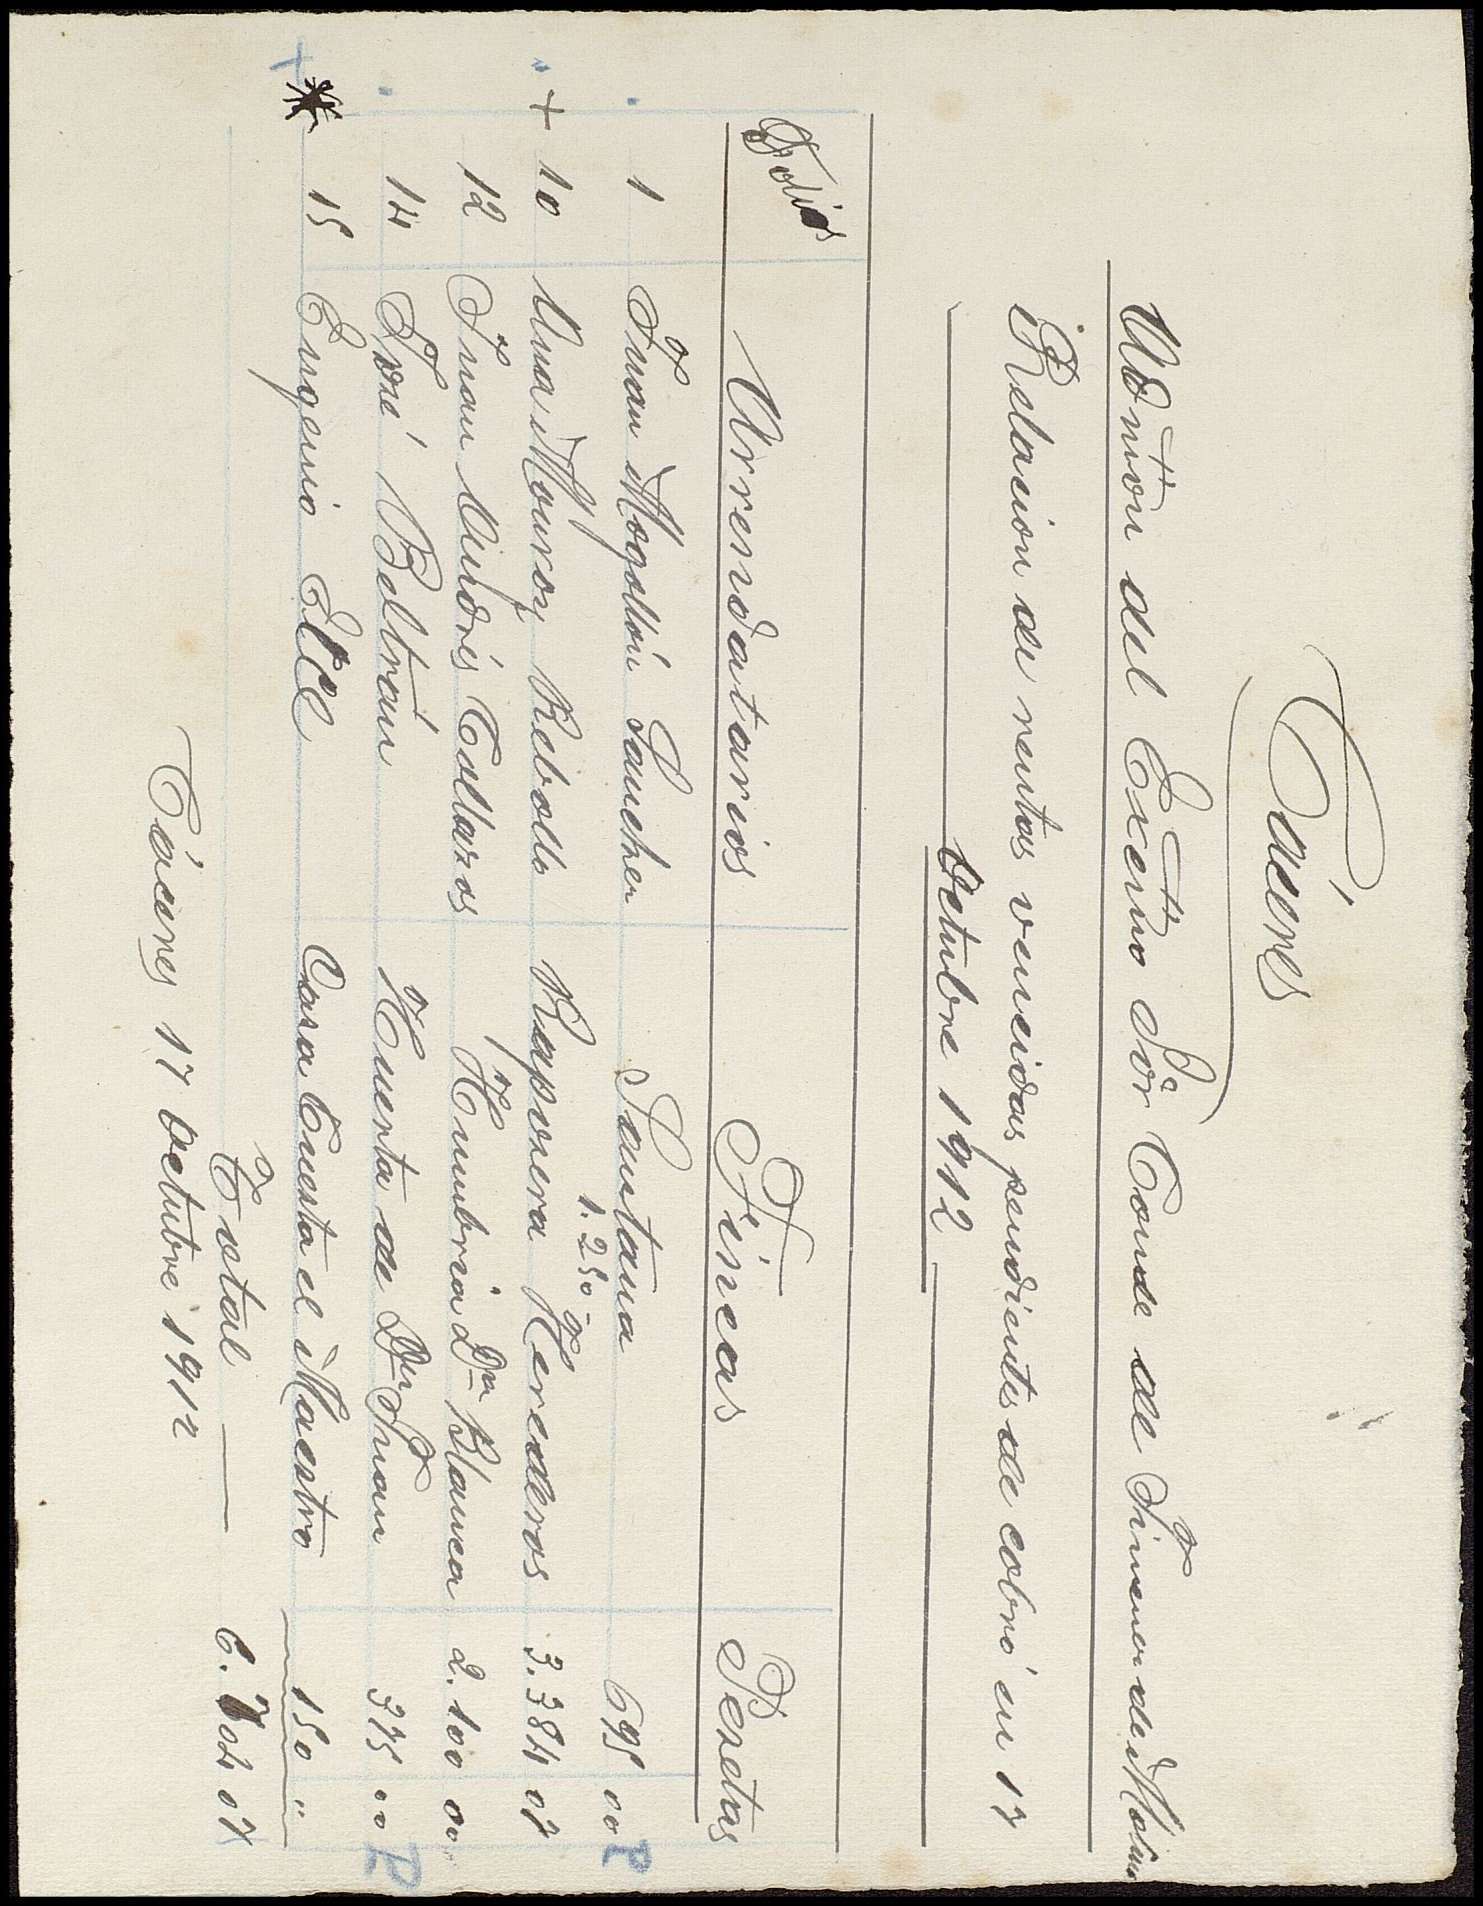 Cáceres
Admón del Excmo Sor Conde de Jimenez de Molina
Relacion de rentas vencidas pendientes de cobro en 17
Octubre 1912
Folios Arrendatarios Fincas Pesetas
1 Juan Mogollón Sanchez Santana 695 00 P
1.250-
+ 10 Ana Monroy Rebollo Raposera Herederos 3.384 07
12 Juan Andrés Collazos Humbria Dª Blanca 2.100 00
14 José Beltrán Huerta de Dn Juan 375 00 P
15 Eugenio Elle Casa Cuesta el Maestro 150 "
Total 6.704 07
Cáceres 17 Octubre 1912